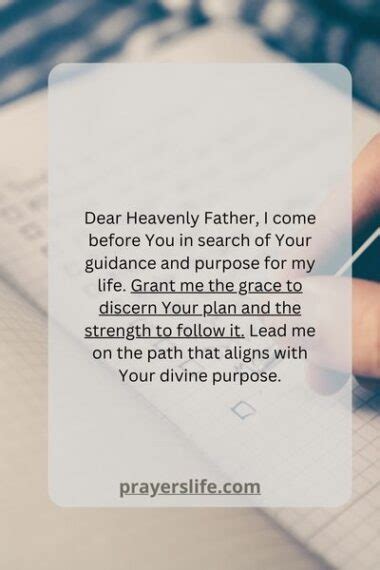 Dear Heavenly Father, I come
before You in search of Your
guidance and purpose for my
life. Grant me the grace to
discern Your plan and the
strength to follow it. Lead me
on the path that aligns with
Your divine purpose.
prayerslife.com